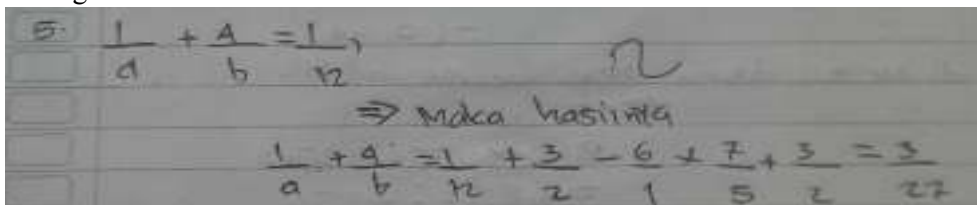 5. 1/a + 4/b = 1/12,
⇒ Maka hasilnya
1/a + 4/b = 1/12 + 3/2 - 6/1 + 7/5 + 3/2 = 3/27